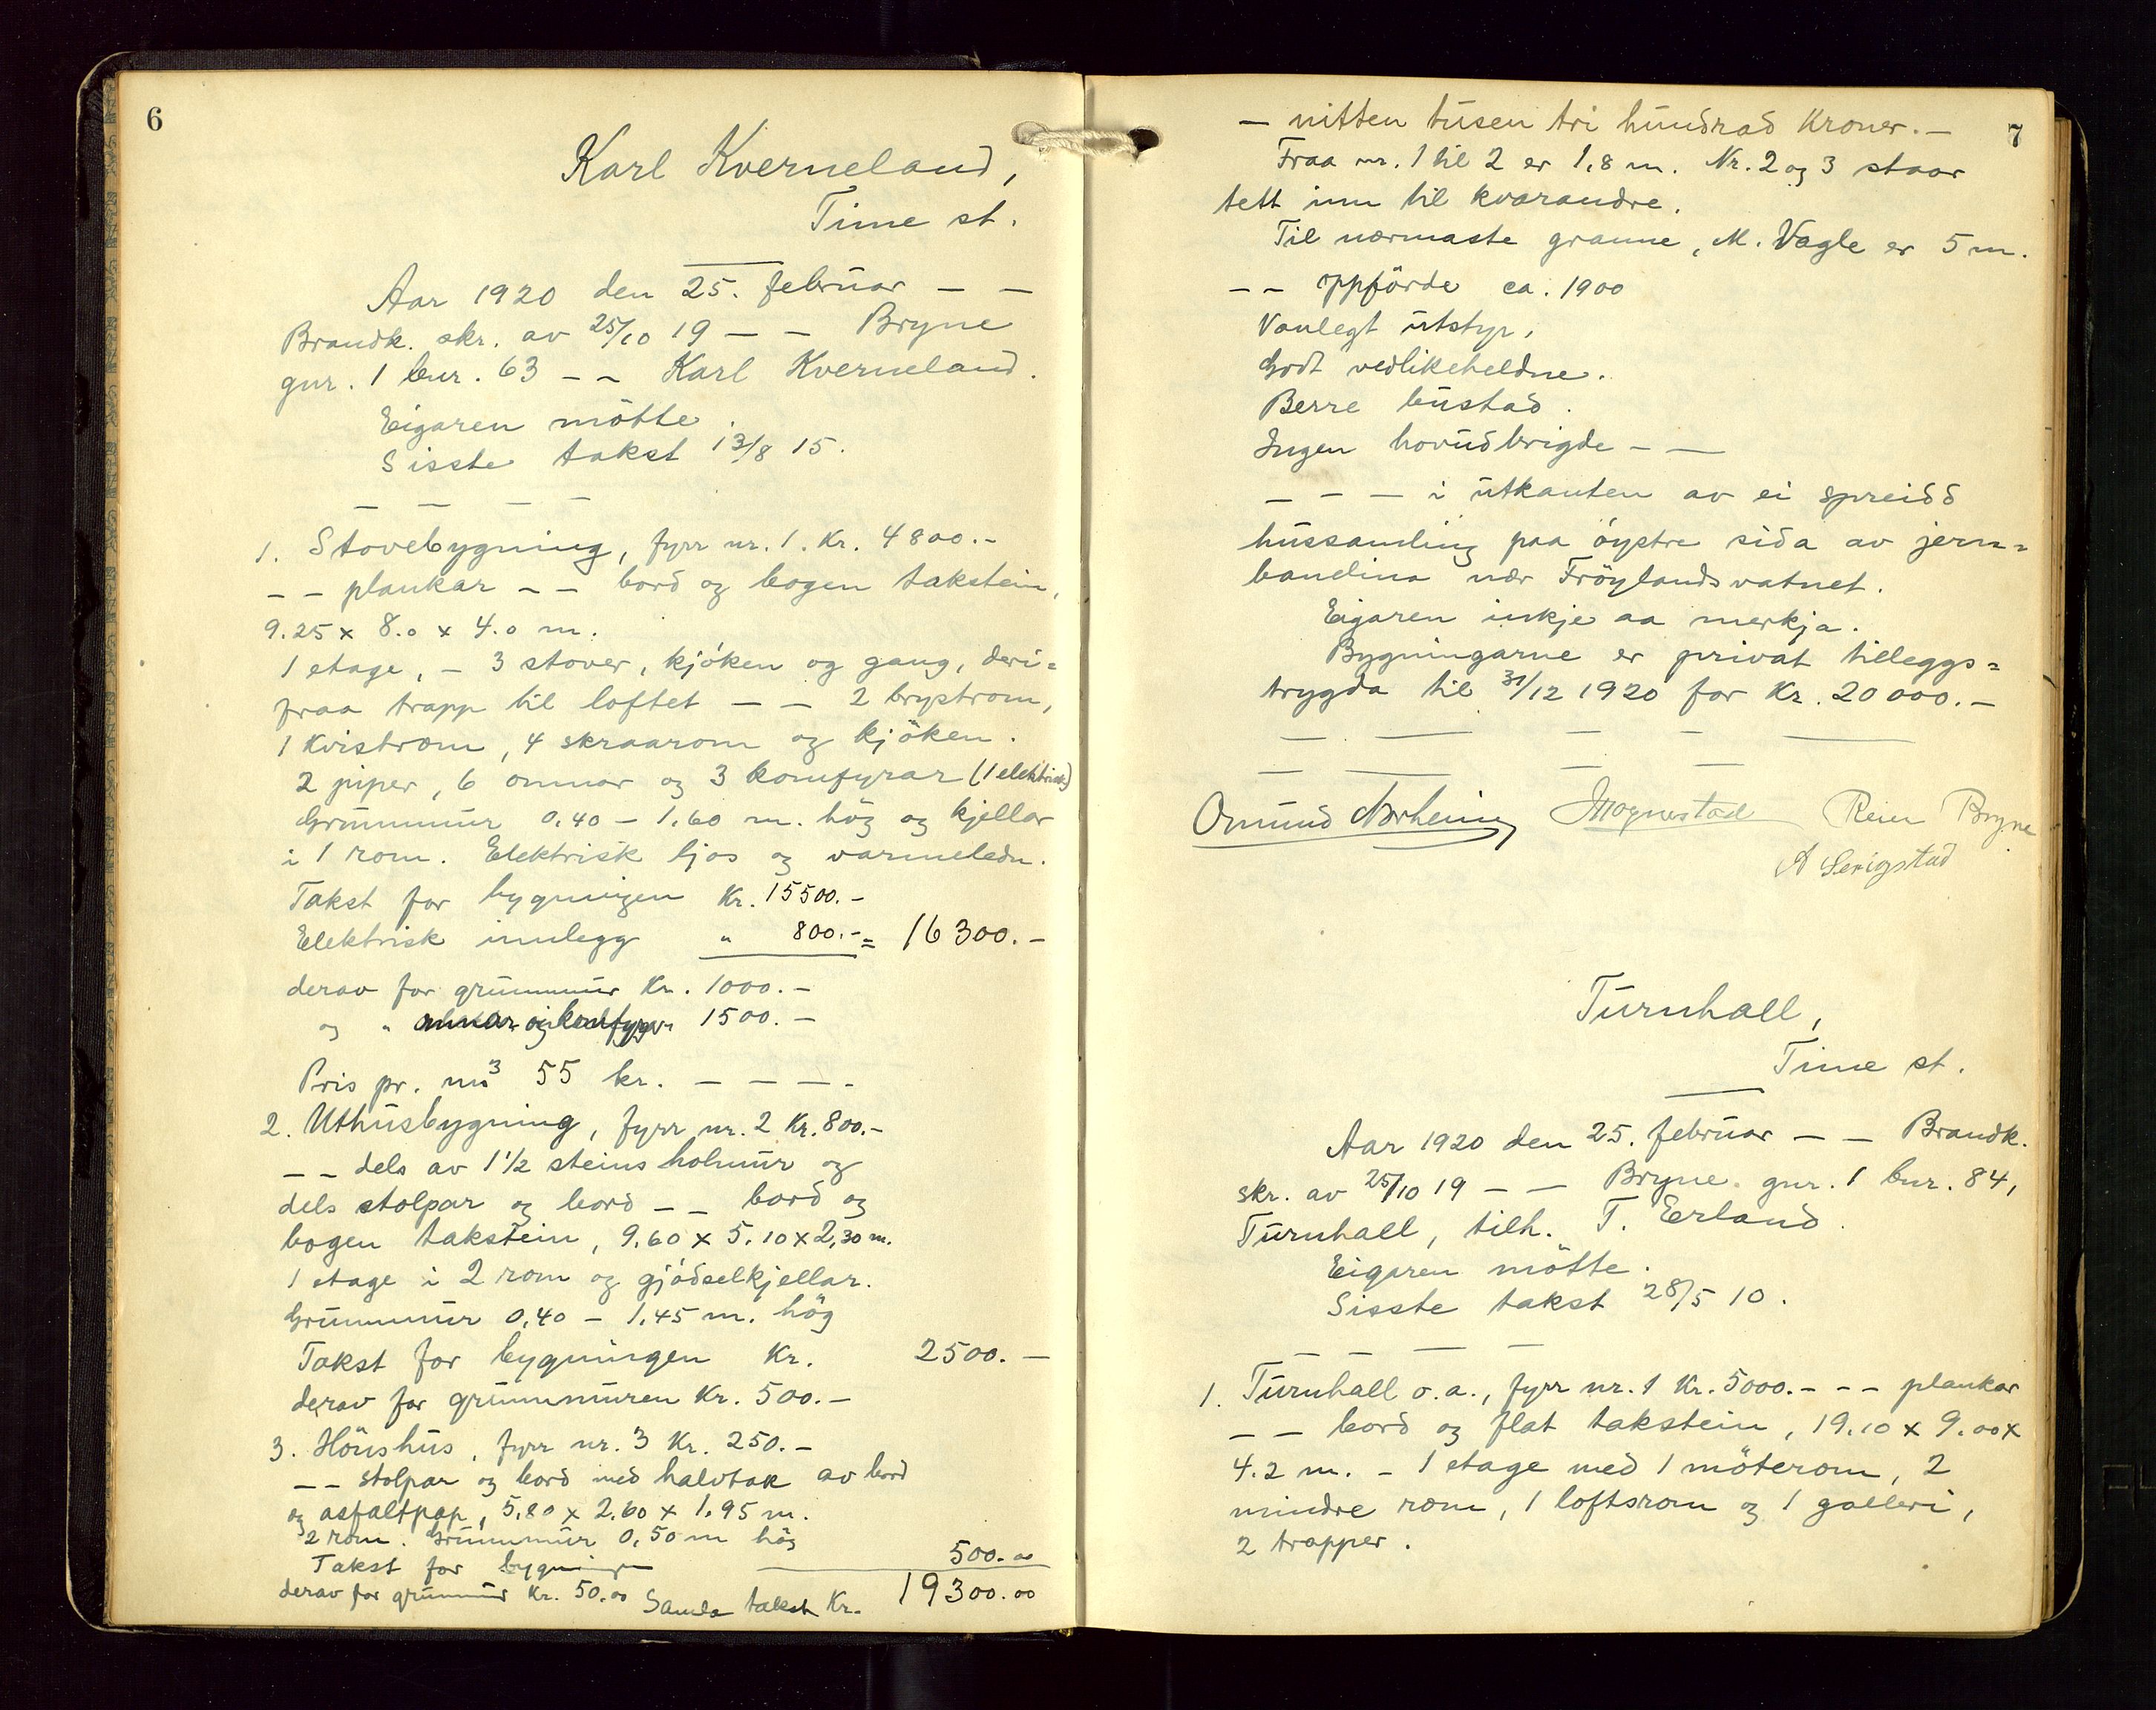 6
Karl Kverneland,
Time st.
Aar 1920 den 25. februar – –
Brandk. skr. av 25/10 19 – – Bryne
gnr. 1 bnr. 63 – – Karl Kverneland.
Eigaren mötte.
Sisste takst 13/8 15.
– – – –
1. Stovebygning, fyrr nr. 1. Kr. 4800.–
– – plankar – – bord og bogen takstein,
9.25 x 8.0 x 4.0 m.
1 etage, – 3 stover, kjöken og gang, deri=
fraa trapp til loftet – – 2 brystrom,
1 Kvistrom, 4 skraarom og kjöken.
2 piper, 6 omnar og 3 komfyrar (1 elektrisk)
Grunnmur 0.40 – 1.60 m. hög og kjellar
i 1 rom. Elektrisk ljos og varmeledn.
Takst for bygningen Kr. 15500.–
Elektrisk innlegg " 800.– = 16300.–
derav for grunnmur Kr. 1000.–
og " omnar og komfyrar 1500.–
Pris pr. m³ 55 kr. – – – –
2. Uthusbygning, fyrr nr. 2 Kr. 800.–
– – dels av 1½ steins holmur og
dels stolpar og bord – – bord og
bogen takstein, 9.60 x 5.10 x 2,30 m.
1 etage i 2 rom og gjödselkjellar.
Grunnmur 0,40 – 1,45 m. hög
Takst for bygningen Kr. 2500.–
derav for grunnmuren Kr. 500.–
3. Hönshus, fyrr nr. 3 Kr. 250.–
– – stolpar og bord med halvtak av bord
og asfaltpap, 5,80 x 2,60 x 1,95 m.
2 rom. Grunnmur 0,50 m hög
Takst for bygningen 500.00
derav for grunnmur Kr. 50.00 Samla takst Kr. 19300.00
7
– nitten tusen tri hundrad Kroner.–
Fraa nr. 1 til 2 er 1,8 m. Nr. 2 og 3 staar
tett inn til kvarandre.
Til nærmaste granne, M. Vagle er 5 m.
– – oppförde ca. 1900
Vanlegt utstyr,
Godt vedlikeheldne.
Berre bustad.
Ingen hovudbrigde – –
– – – i utkanten av ei spreidd
hussamling paa öystre sida av jern=
banelina nær Fröylandsvatnet.
Eigaren inkje aa merkja.
Bygningarne er privat tilleggs=
trygda til 31/12 1920 for Kr. 20000.–
Omund Norheim Mognestad Reier Bryne
A Serigstad
Turnhall,
Time st.
Aar 1920 den 25. februar – – Brandk.
skr. av 25/10 19 – – Bryne. gnr. 1 bnr. 84,
Turnhall, tilh. T. Erland.
Eigaren mötte.
Sisste takst 28/5 10.
– – – –
1. Turnhall o.a., fyrr nr. 1 Kr. 5000.– – – plankar
– – bord og flat takstein, 19.10 x 9.00 x
4.2 m. – 1 etage med 1 möterom, 2
mindre rom, 1 loftsrom og 1 galleri,
2 trapper.